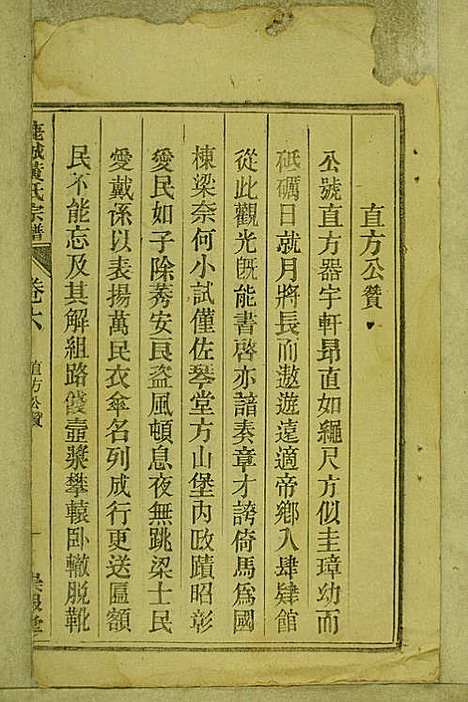 直方公贊
公號直方器宇軒昂直如繩尺方似圭璋幼而
砥礪日就月將長而遨遊遠適帝鄉入肆肄館
從此觀光旣能書啓亦諳奏章才誇倚馬爲國
棟梁奈何小試僅佐琴堂方山堡內政蹟昭彰
愛民如子除莠安良盜風頓息夜無跳梁士民
愛戴係以表揚萬民衣傘名列成行更送匾額
民不能忘及其解組路餞壺漿攀轅臥轍脫靴
黃氏宗譜
卷六
直方公贊
一
堂